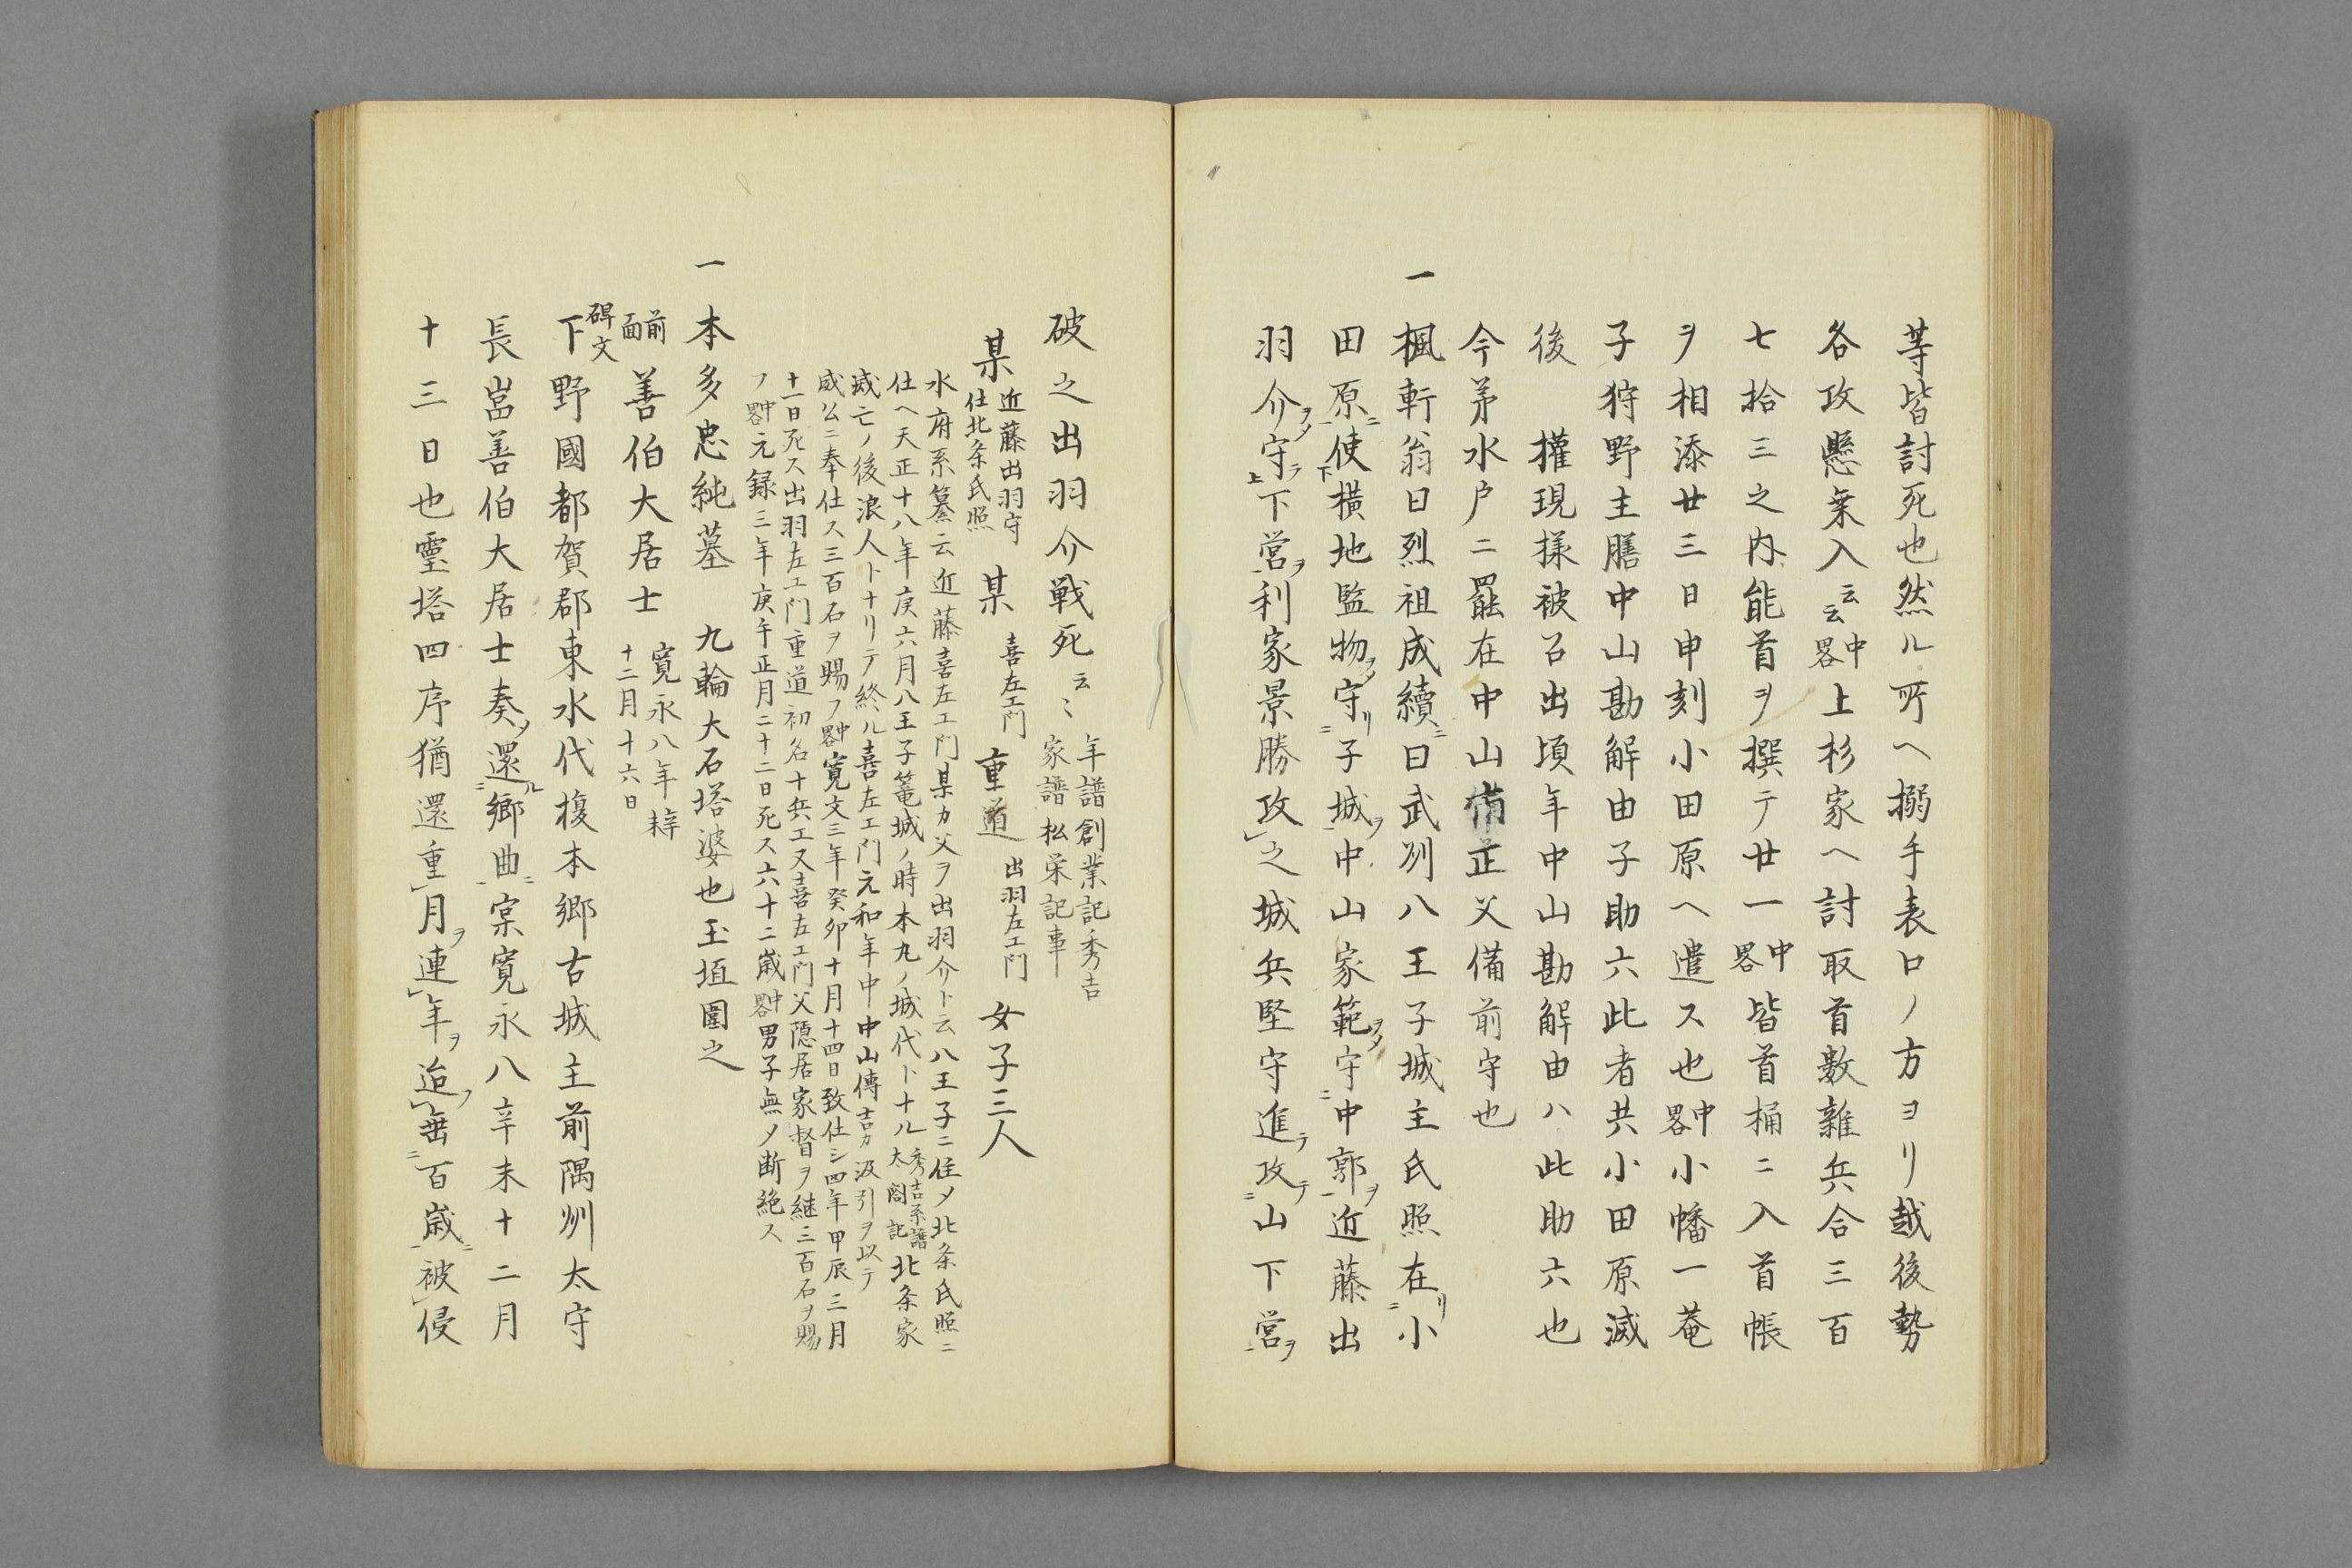 等皆討死也然ル所ヘ搦手表口ノ方ヨリ越後勢
各攻懸乗入云云中畧上杉家ヘ討取首數雜兵合三百
七拾三之内能首ヲ撰テ廿一中畧皆首桶ニ入首帳
ヲ相添廿三日申刻小田原ヘ遣ス也中畧小幡一菴
子狩野主膳中山勘解由子助六此者共小田原滅
後　權現様被召出頃年中山勘解由ハ此助六也
今茅水户ニ罷在中山備正父備前守也
一楓軒翁曰烈祖成續ニ曰武刕八王子城主氏照在リ二小
田原ニ一使下横地監物ヲメ守リ二子城ヲ一中山家範ヲメ守二中郭ヲ一近藤出
羽介ヲメ守ラ上下営ヲ一利家景勝攻之城兵堅守進テ攻テ二山下営ヲ一
破之出羽介戦死云々年譜創業記秀吉
家譜松栄記事
某近藤出羽守
仕北条氏照　某喜左エ門　重道出羽左エ門　女子三人
水府系纂云近藤喜左エ門某カ父ヲ出羽介ト云八王子ニ住メ北条氏照ニ
仕ヘ天正十八年庚六月八王子篭城ノ時本丸ノ城代トナル秀吉系譜
太閤記北条家
滅亡ノ後浪人トナリテ終ル喜左エ門元和年中中山傳吉カ汲引ヲ以テ
威公ニ奉仕ス三百石ヲ賜フ中畧寛文三年癸卯十月十四日致仕シ四年甲辰三月
十一日死ス出羽左エ門重道初名十兵エ又喜左エ門父隠居家督ヲ継三百石ヲ賜
フ中畧元録三年庚午正月二十二日死ス六十二歳中畧男子無メ断絶ス
一本多忠純墓　九輪大石塔婆也玉垣圍之
前面　善伯大居士　寛永八年
十二月十六日
碑文
下野國都賀郡東水代榎本郷古城主前隅刕太守
長嵓善伯大居士奏ヲ還ル二郷曲ニ一寛永八辛未十二月
十三日也霊塔四序猶還重月ヲ連年ヲ迨ヲ二百歳ニ一被侵